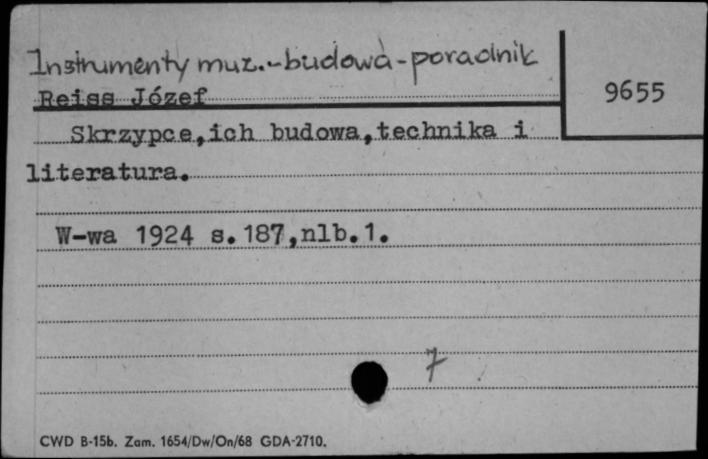 Instrumenty muz.-budowa-poradnik
Reiss Józef
9655
Skrzypce,ich budowa,technika i
literatura.
W-wa 1924 s.187,nlb.1.
7
CWD B-15b. Zam. 1654/Dw/On/68 GDA-2710.